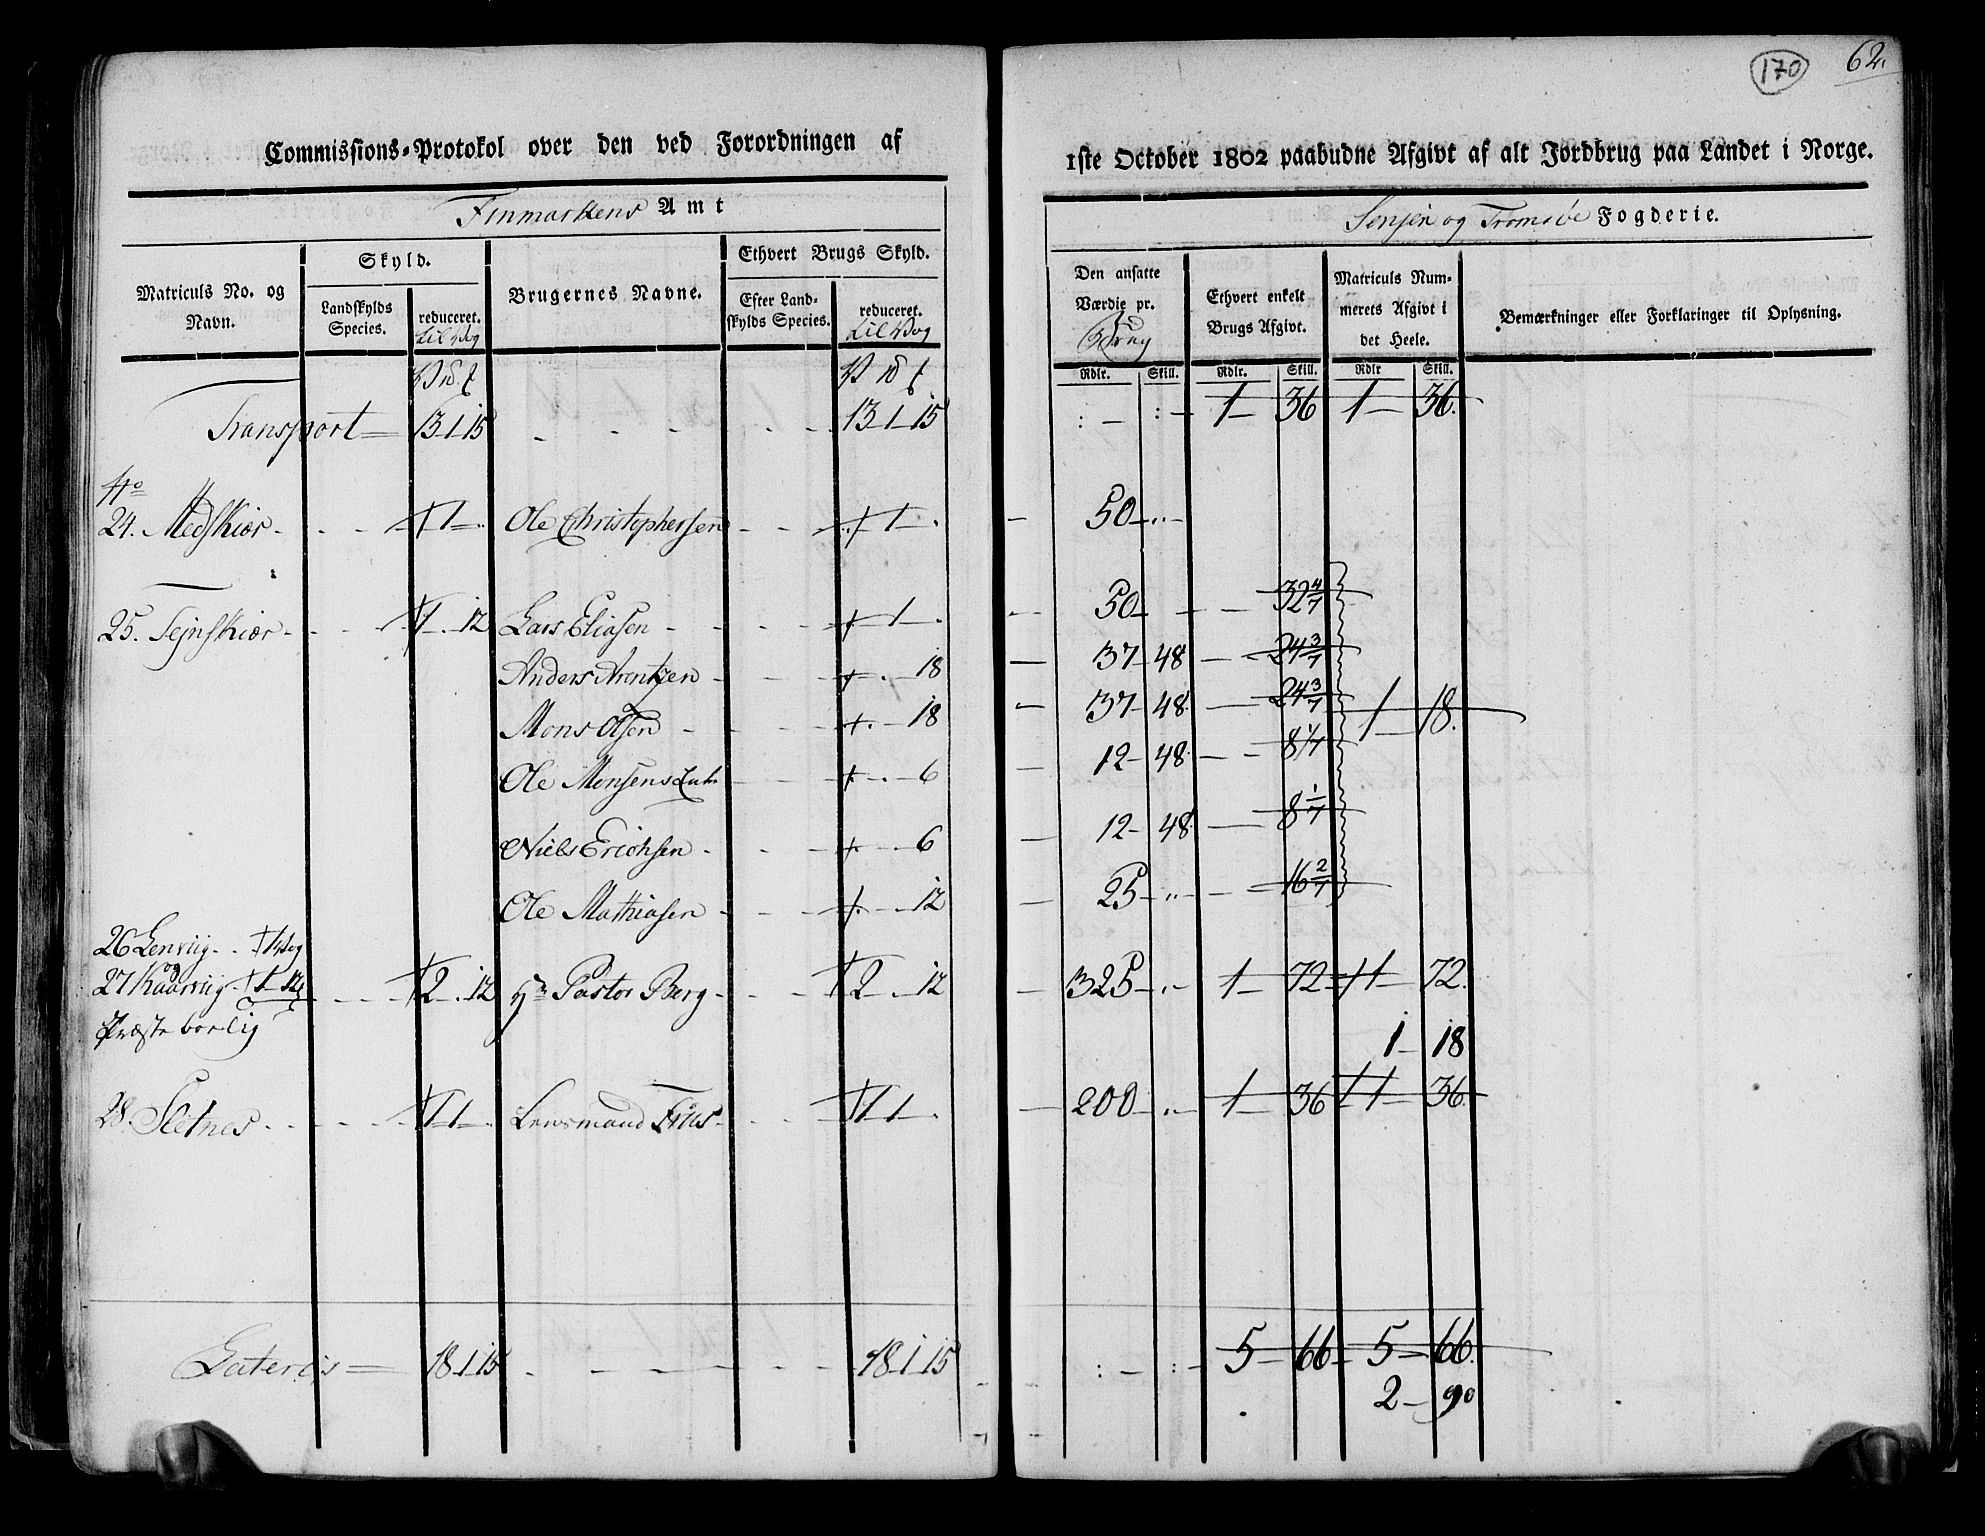 170 62.
Commissions-Protokol over den ved Forordningen af 1ste October 1802 paabudne Afgivt af alt Jordbrug paa Landet i Norge.
Finmarkens Amt
Senjen og Tromsöe Fogderie.
Matriculs No. og Navn.
Skyld.
Landskylds Species.
reduceret. til Vog
Brugernes Navne.
Ethvert Brugs Skyld.
Efter Landskylds Species.
reduceret. til Vog
Den ansatte Værdie pr. Brug
Ethvert enkelt Brugs Afgivt.
Matriculs Nummerets Afgivt i det Heele.
Bemærkninger eller Forklaringer til Oplysning.
Rdlr. Skill. Rdlr. Skill. Rdlr Skill.
Transport 13 1 15 - - - - - 13 1 15 : - : - 1 - 36 1 - 36.
No
24. Medskiær - - - 1 - Ole Christophersen - - 1 - 50 - .. -
25. Tejnskiær - - - 1 - 12 Lars Eliasen - - - - 1 - 50 - - - 32 4/7
Anders Arentzen - - - 18 37 - 48 - 24 3/7
Mons Olsen - - - 18 37 - 48 - 24 3/7 1 - 18.
Ole Monsens - - 6 12 - 48 - - 8 1/7
Niels Erichsen - - - 6 12 - 48 - 8 1/7
Ole Mathiasen - - - 12 25 - .. - - 16 2/7
26 Lenvig - - 1 Vog
og
27 Kaarvig - 1 - 12 - - - 2 - 12 Hr Pastor Berg - - - 2 - 12 325 - .. - 1 - 72 - 1 - 72.
Præste boelig
1 - 18
28. Sletnes - - - - - 1 - Lensmand Friis - - - 1 - 200 - .. - 1 - 36 1 - 36
Lateris 18 1 15 - - - - - - 18 1 15 : - : - 5 - 66 - 5 - 66.
2 - 90